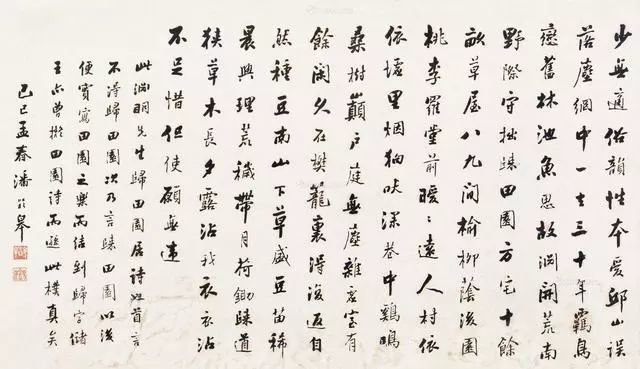 少無適俗韻性本愛邱山誤
落塵網中一去三十年羈鳥
戀舊林池魚思故淵開荒南
野際守拙歸田園方宅十餘
畝草屋八九間榆柳蔭後園
桃李羅堂前曖々遠人村依
依墟里烟狗吠深巷中鷄鳴
桑樹巔戶庭無塵雜虛室有
餘閑久在樊籠裏得復返自
然種豆南山下草盛豆苗稀
晨興理荒穢帶月荷鋤歸道
狹草木長夕露沾我衣衣沾
不足惜但使願無違
此淵明先生歸田園居詩如首言
不得歸田園次乃言歸田園以後
便實寫田園之樂而結到歸字儲
王亦曾擬田園詩而遜此樸真矣
己巳孟春潘齡皋